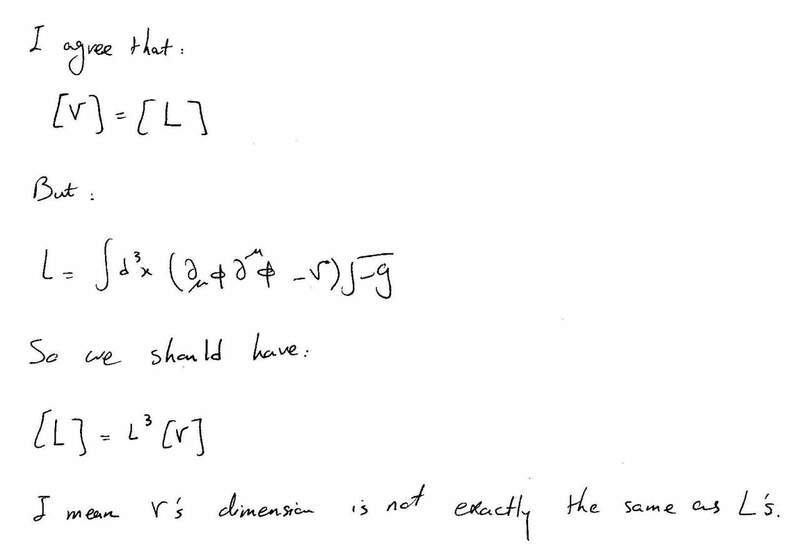 I agree that:
[V] = [L]
But:
L = ∫d³x (∂_μ ϕ ∂^μ ϕ - V) √-g
So we should have:
[L] = L³ [V]
I mean V's dimension is not exactly the same as L's.